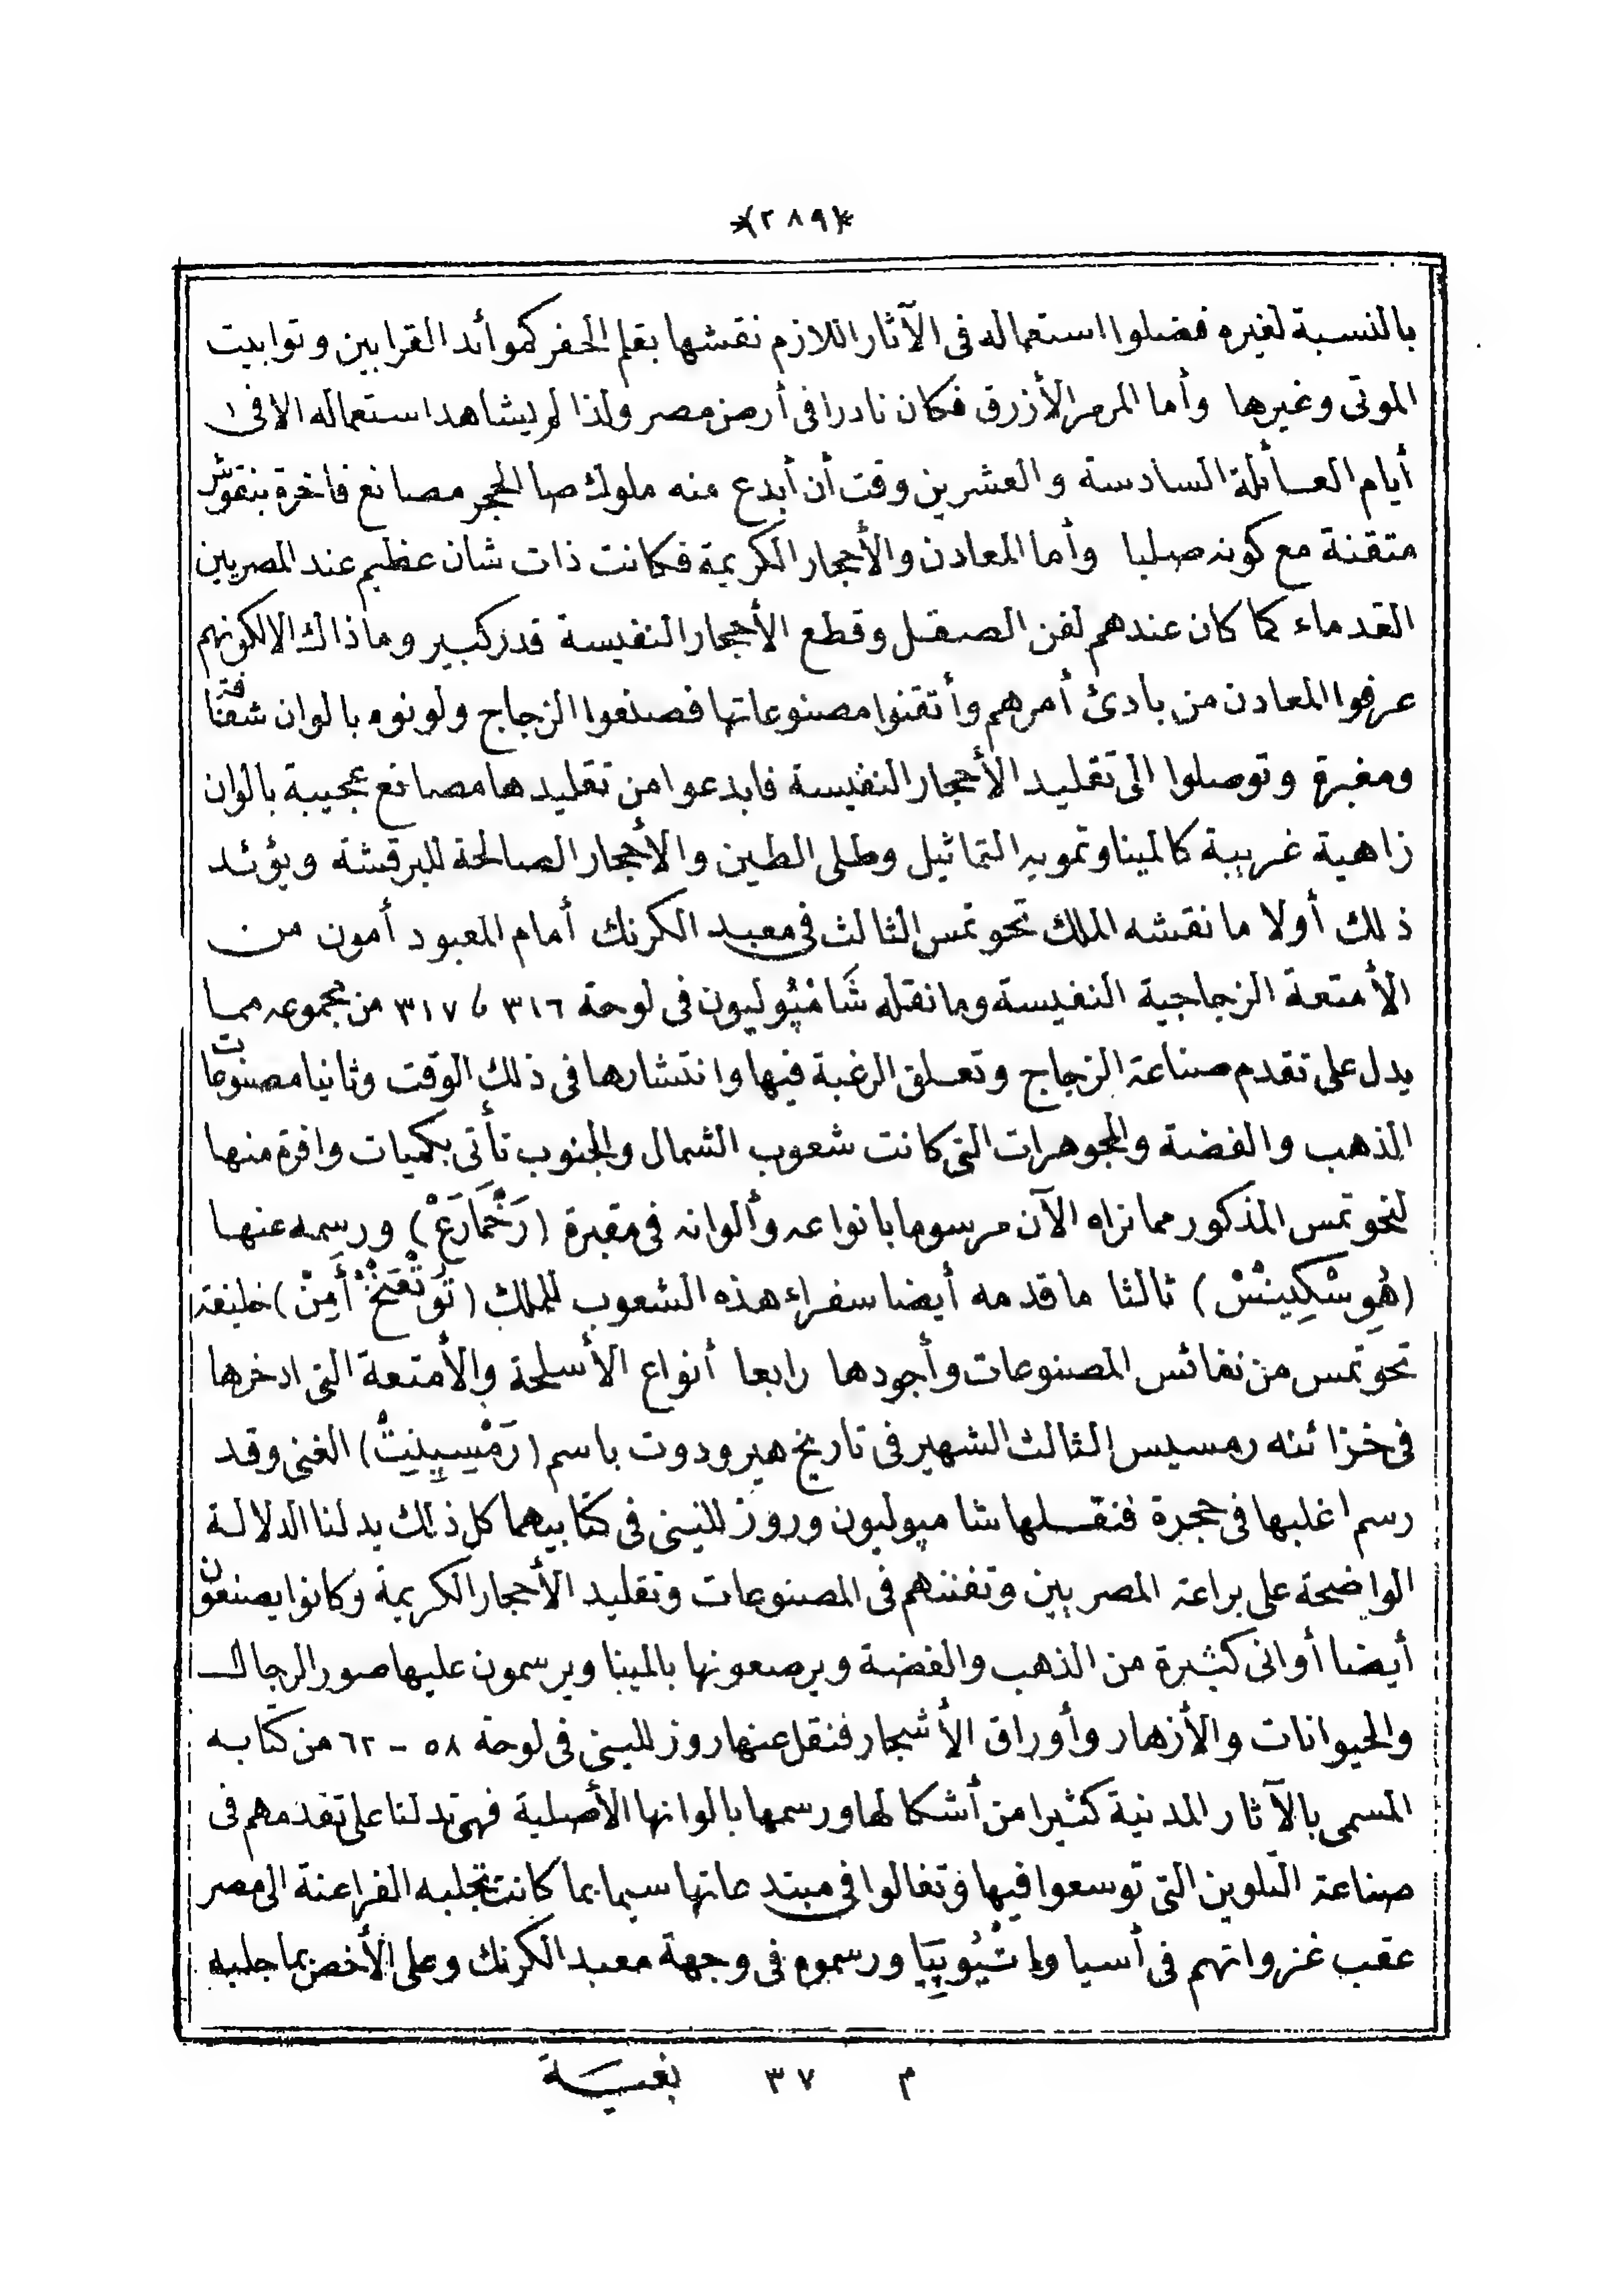 *(٢٨٩)*
بالنسبة لغيره فضلوا استعماله فى الآثار اللازم نقشها بقلم الحفر كموائد القرابين وتوابيت
الموتى وغيرها وأما المرمر الأزرق فكان نادرا فى أرض مصر ولذا لم يشاهد استعماله الا فى
أيام العائلة السادسة والعشرين وقت أن أبدع منه ملوك صا الحجر مصانع فاخرة بنقوش
متقنة مع كونه صلبا وأما المعادن والأحجار الكريمة فكانت ذات شان عظيم عند المصريين
القدماء كما كان عندهم لفن الصقل وقطع الأحجار النفيسة قدر كبير وما ذاك الا لكونهم
عرفوا المعادن من بادئ أمرهم وأتقنوا مصنوعاتها فصنعوا الزجاج ولونوه بالوان شفافة
ومغبرة وتوصلوا الى تقليد الأحجار النفيسة فابدعوا من تقليدها مصانع عجيبة بالوان
زاهية غريبة كالمينا وتمويه التماثيل وطلى الطين والأحجار الصالحة للبرقشة ويؤيد
ذلك أولا ما نقشه الملك تحوتمس الثالث فى معبد الكرنك أمام المعبود أمون من
الأمتعة الزجاجية النفيسة وما نقله شَامْپُوليون فى لوحة ٣١٦ ، ٣١٧ من مجموعه مما
يدل على تقدم صناعة الزجاج وتعلق الرغبة فيها وانتشارها فى ذلك الوقت وثانيا مصنوعات
الذهب والفضة والمجوهرات التى كانت شعوب الشمال والجنوب تأتى بكميات وافرة منها
لتحوتمس المذكور مما نراه الآن مرسوما بانواعه وألوانه فى مقبرة (رَخْمَارَعْ) ورسمه عنها
(هُوِسْكِينْسْ) ثالثا ما قدمه أيضا سفراء هذه الشعوب للملك (تُوَتْعَنْخْ أَمِنْ) خليفة
تحوتمس من نفائس المصنوعات وأجودها رابعا أنواع الأسلحة والأمتعة التى ادخرها
فى خزائنه رمسيس الثالث الشهير فى تاريخ هيرودوت باسم (رَمْپِسِينِيتْ) الغنى وقد
رسم اغلبها فى حجرة فنقلها شامپوليون وروزللينى فى كتابيهما كل ذلك يدلنا الدلالة
الواضحة على براعة المصريين وتفننهم فى المصنوعات وتقليد الأحجار الكريمة وكانوا يصنعون
أيضا أوانى كثيرة من الذهب والفضة ويرصعونها بالمينا ويرسمون عليها صور الرجال
والحيوانات والأزهار وأوراق الأشجار فنقل عنها روزللينى فى لوحة ٥٨ - ٦٢ من كتابه
المسمى بالآثار المدنية كثيرا من أشكالها ورسمها بالوانها الأصلية فهى تدلنا على تقدمهم فى
صناعة التلوين التى توسعوا فيها وتغالوا فى مبتدعاتها سيما بما كانت تجلبه الفراعنة الى مصر
عقب غزواتهم فى أسيا وإتْيُوپِيَا ورسموه فى وجهة معبد الكرنك وعلى الأخص بما جلبه
م ٣٧ بغية